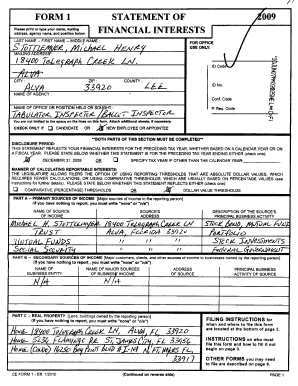 FORM 1
STATEMENT OF
FINANCIAL INTERESTS
2009
Please print or type your name, mailing address, agency name, and position below:
LAST NAME -- FIRST NAME -- MIDDLE NAME :
STOTTLEMYER, MICHAEL HENRY
MAILING ADDRESS :
18400 TELEGRAPH CREEK LN.
ALVA
CITY : ZIP : COUNTY :
ALVA 33920 LEE
NAME OF AGENCY :
NAME OF OFFICE OR POSITION HELD OR SOUGHT :
TABULATOR INSPECTOR / BALLOT INSPECTOR
You are not limited to the space on the lines on this form. Attach additional sheets, if necessary.
CHECK ONLY IF CANDIDATE OR NEW EMPLOYEE OR APPOINTEE
FOR OFFICE USE ONLY:
ID Code
ID No.
Conf. Code
P. Req. Code
**BOTH PARTS OF THIS SECTION MUST BE COMPLETED**
DISCLOSURE PERIOD:
THIS STATEMENT REFLECTS YOUR FINANCIAL INTERESTS FOR THE PRECEDING TAX YEAR, WHETHER BASED ON A CALENDAR YEAR OR ON A FISCAL YEAR. PLEASE STATE BELOW WHETHER THIS STATEMENT IS FOR THE PRECEDING TAX YEAR ENDING EITHER (check one):
DECEMBER 31, 2009 OR SPECIFY TAX YEAR IF OTHER THAN THE CALENDAR YEAR:
MANNER OF CALCULATING REPORTABLE INTERESTS:
THE LEGISLATURE ALLOWS FILERS THE OPTION OF USING REPORTING THRESHOLDS THAT ARE ABSOLUTE DOLLAR VALUES, WHICH REQUIRES FEWER CALCULATIONS, OR USING COMPARATIVE THRESHOLDS, WHICH ARE USUALLY BASED ON PERCENTAGE VALUES (see instructions for further details). PLEASE STATE BELOW WHETHER THIS STATEMENT REFLECTS EITHER (check one):
COMPARATIVE (PERCENTAGE) THRESHOLDS OR DOLLAR VALUE THRESHOLDS
PART A -- PRIMARY SOURCES OF INCOME [Major sources of income to the reporting person]
(If you have nothing to report, you must write "none" or "n/a")
NAME OF SOURCE OF INCOME
SOURCE'S ADDRESS
DESCRIPTION OF THE SOURCE'S PRINCIPAL BUSINESS ACTIVITY
MICHAEL H. STOTTLEMYER 18400 TELEGRAPH CREEK LN STOCK, BOND, MUTUAL FUND
TRUST ALVA, FLORIDA 33920 PORTFOLIO
MUTUAL FUNDS " " " STOCK INVESTMENTS
SOCIAL SECURITY " " " FEDERAL GOVERNMENT
PART B -- SECONDARY SOURCES OF INCOME [Major customers, clients, and other sources of income to businesses owned by the reporting person]
(If you have nothing to report, you must write "none" or "n/a")
NAME OF BUSINESS ENTITY
NAME OF MAJOR SOURCES OF BUSINESS' INCOME
ADDRESS OF SOURCE
PRINCIPAL BUSINESS ACTIVITY OF SOURCE
N/A N/A
PART C -- REAL PROPERTY [Land, buildings owned by the reporting person]
(If you have nothing to report, you must write "none" or "n/a")
HOME 18400 TELEGRAPH CREEK LN, ALVA, FL 33920
HOME 5236 FLAMINGO DR. ST. JAMES CITY, FL 33956
33917
FILING INSTRUCTIONS for when and where to file this form are located at the bottom of page 2.
INSTRUCTIONS on who must file this form and how to fill it out begin on page 3.
OTHER FORMS you may need to file are described on page 6.
CE FORM 1 - Eff. 1/2010 (Continued on reverse side) PAGE 1